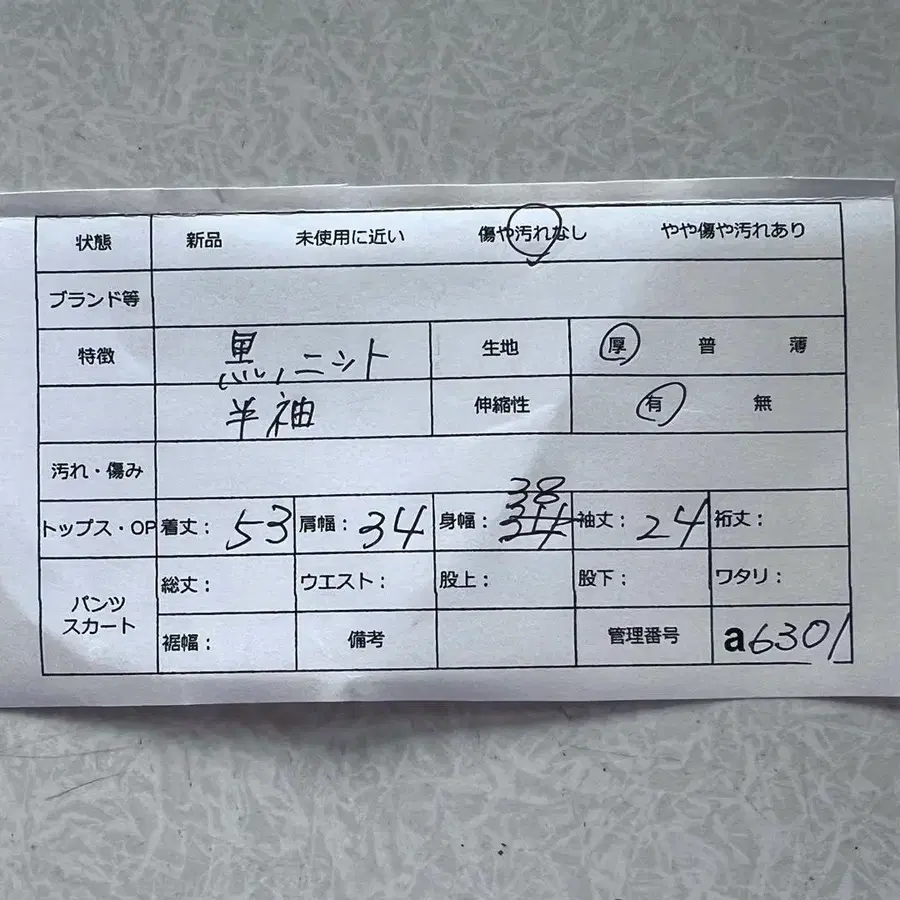 状態 新品 未使用に近い 傷や汚れなし やや傷や汚れあり
ブランド等
特徴 黒,ニット 生地 厚 普 薄
半袖 伸縮性 有 無
汚れ・傷み
38
トップス・OP 着丈: 53 肩幅: 34 身幅: 袖丈: 24 裄丈:
パンツ 総丈: ウエスト: 股上: 股下: ワタリ:
スカート 裾幅: 備考 管理番号 a6301